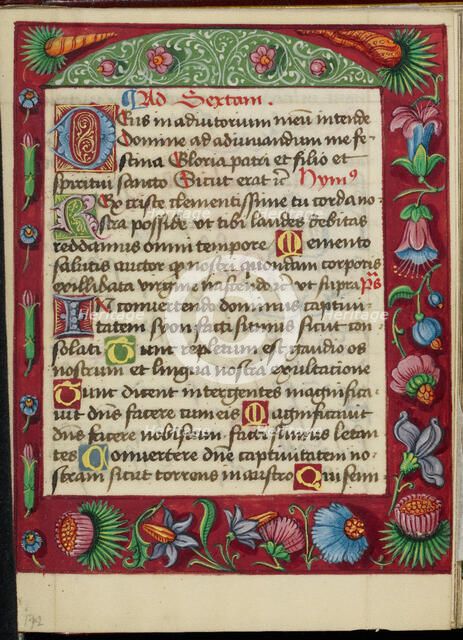 Ad Sextam.
Deus in adiutorium meu intende
Domine ad adiuuandum me fe
stina Gloria patri et filio et
spiritui sancto Sicut erat ic Hymꝰ
Rex criste clementissime tu corda no
stra posside vt tibi laudes debitas
reddamus omni tempore Memento
salutis auctor qp nostri quondam corporis
ex illibata virgine nascendo ic vt supra ps
In convertendo dominus captiui
tatem syon facti sumus sicut con
solati Tunc repletum est gaudio os
nostrum et lingua nostra exultatione
Tunc dicent inter gentes magnifica
uit dns facere cum eis Magnificauit
dns facere nobiscum facti sumus letan
tes Convertere dne captiuitatem no
stram sicut torrens in austro Qui semi
heritage
Heritage
192